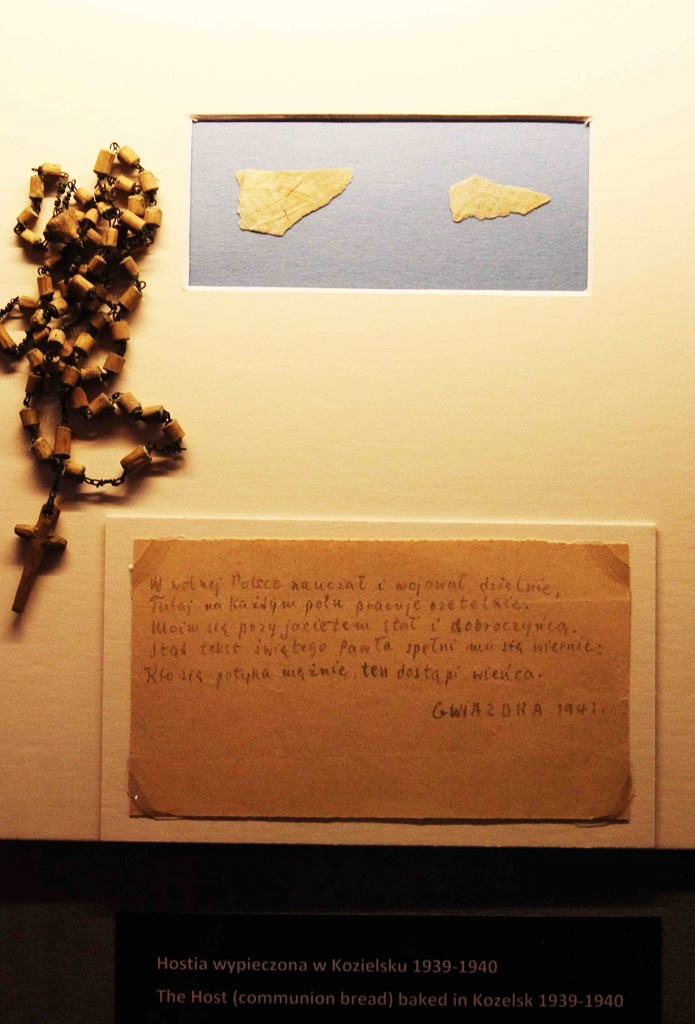 W wolnej Polsce nauczał i wojował dzielnie,
Tutaj na każdym polu pracuje rzetelnie.
Moim się przyjacielem stał i dobroczyńcą.
Stąd tekst świętego Pawła spełni mu się wiernie:
Kto się potyka mężnie, ten dostąpi wieńca.
GWIAZDKA 1941.
Hostia wypieczona w Kozielsku 1939-1940
The Host (communion bread) baked in Kozelsk 1939-1940